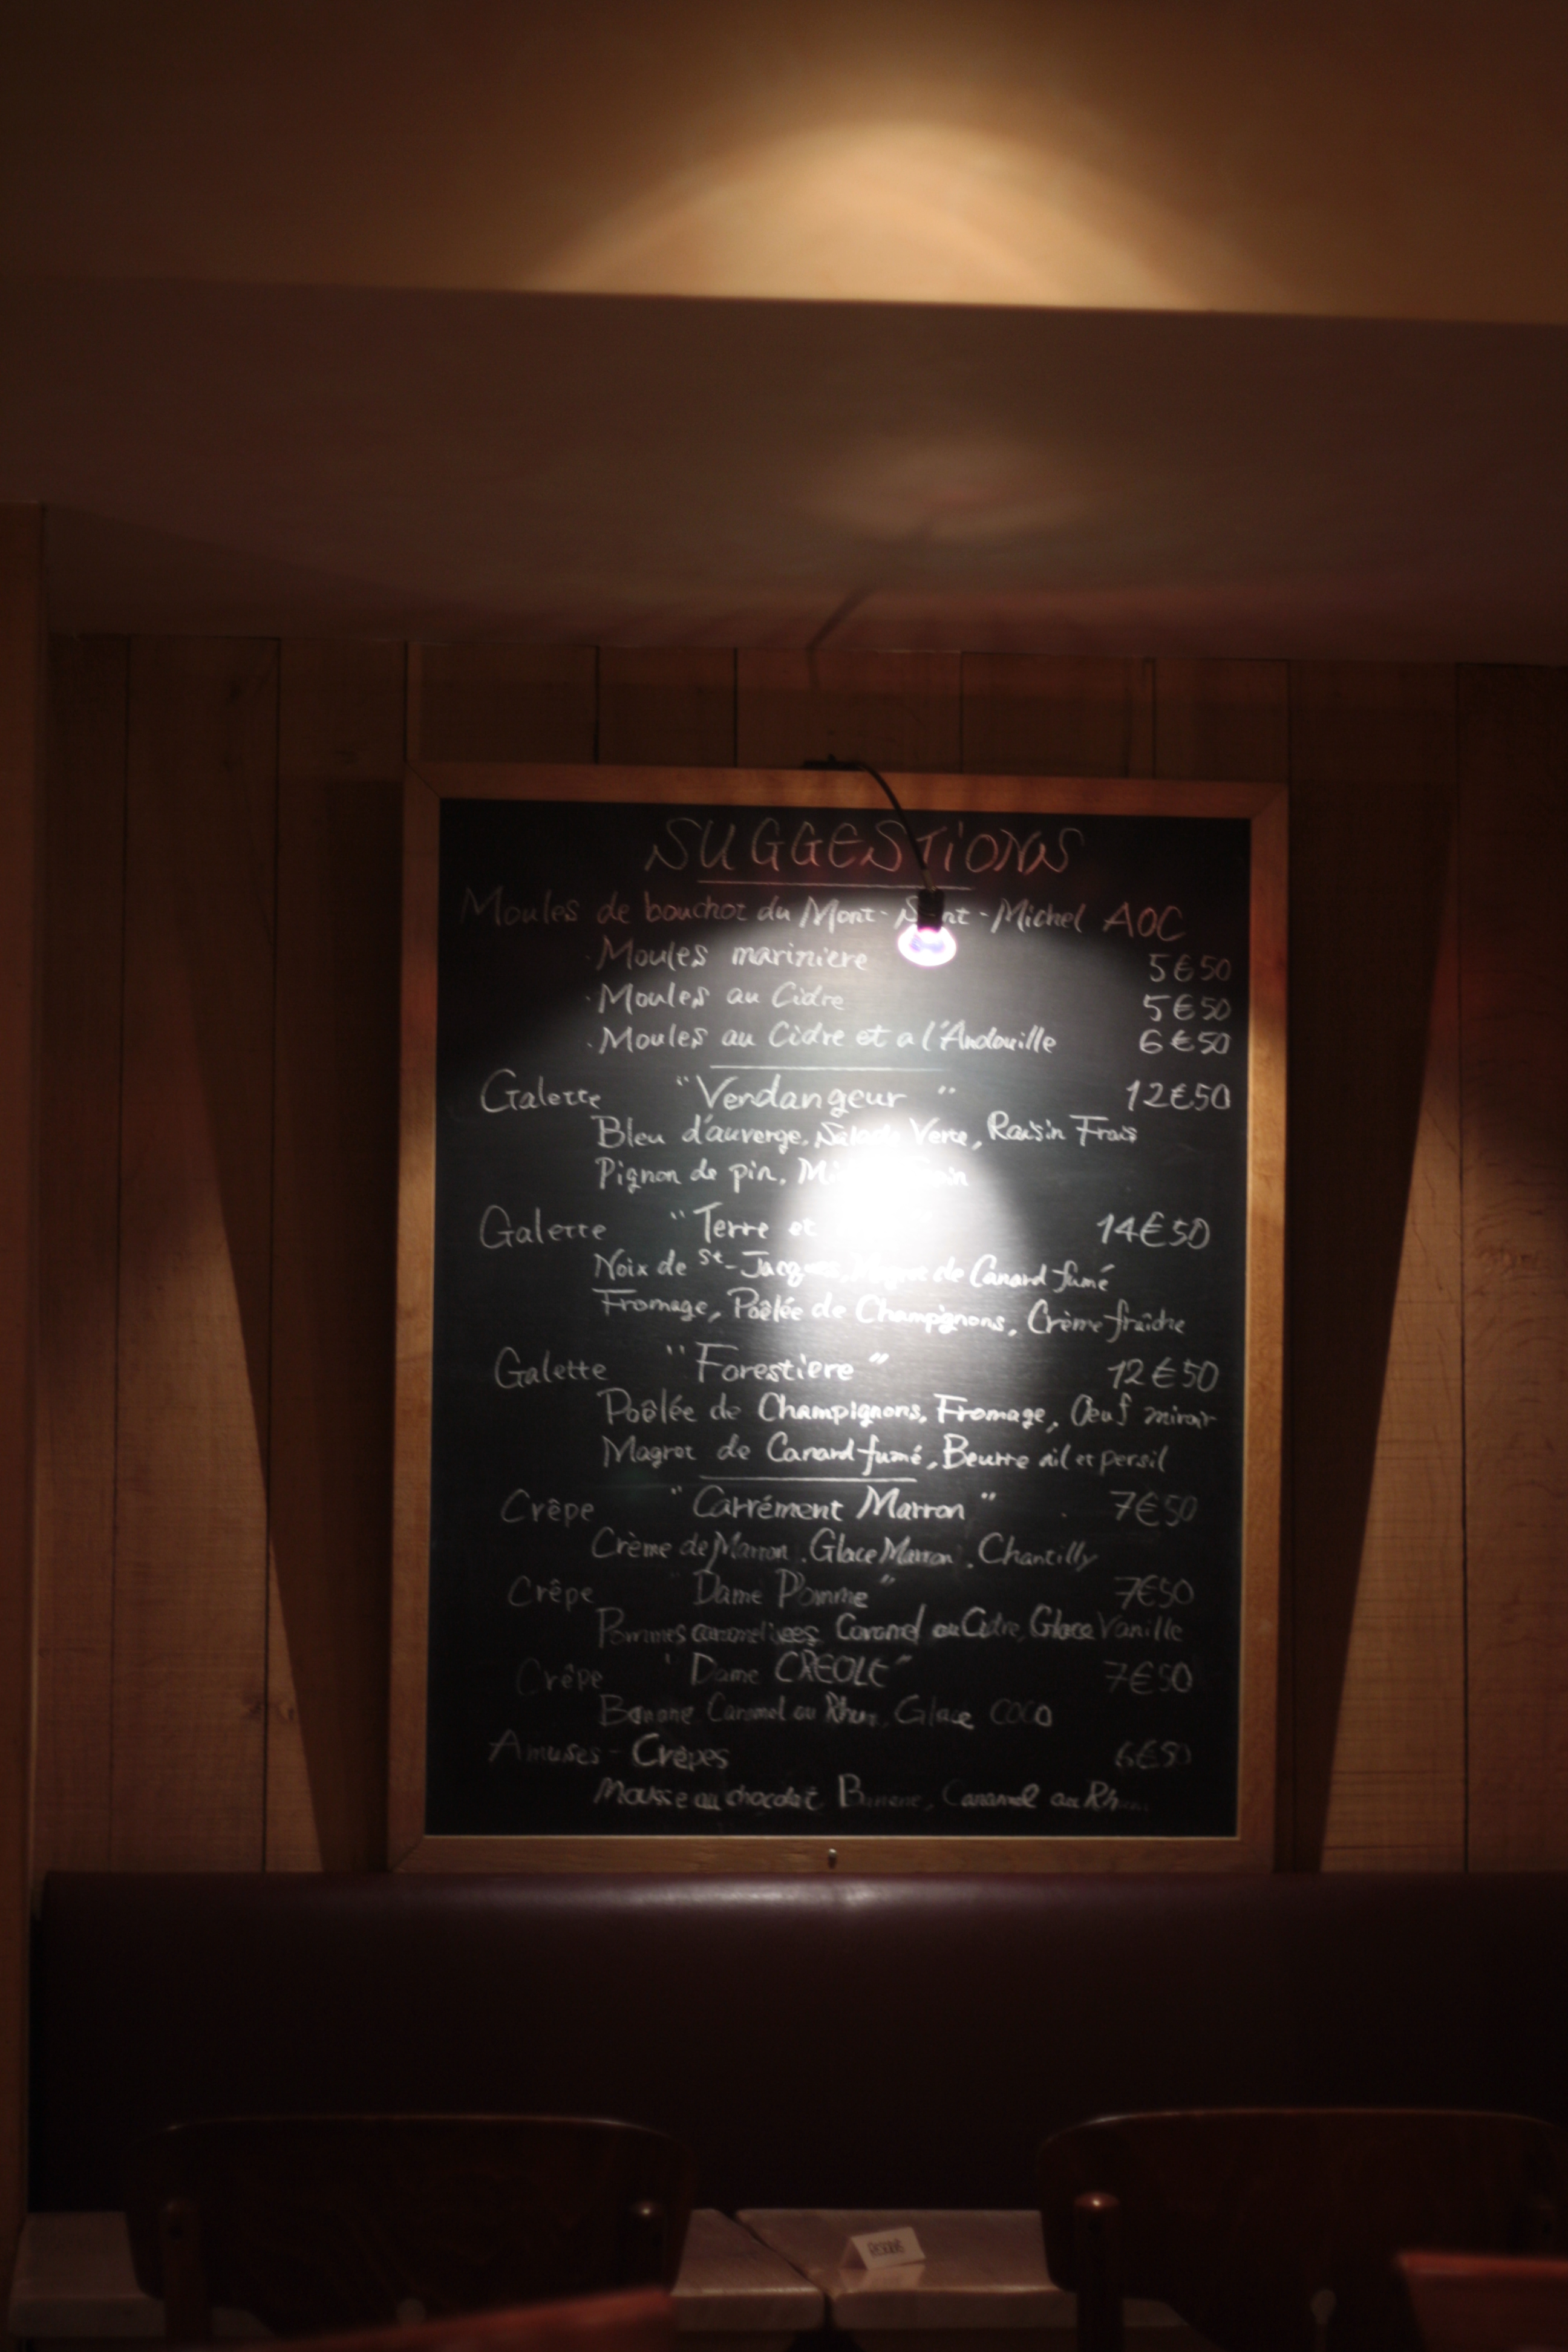 SUGGESTIONS
Moules de bouchot du Mont-Saint-Michel AOC
. Moules mariniere 5€50
. Moules au Cidre 5€50
. Moules au Cidre et a l'Andouille 6€50
Galette "Vendangeur" 12€50
Bleu d'auverge, Salade Verte, Raisin Frais
Pignon de pin,
Galette "Terre et 14€50
Noix de St-Jacques, Magret de Canard fumé
Fromage, Poêlée de Champignons, Crème fraîche
Galette "Forestiere" 12€50
Poêlée de Champignons, Fromage, Œuf miroir
Magret de Canard fumé, Beurre ail et persil
Crêpe "Carrément Marron" 7€50
Crème de Marron, Glace Marron, Chantilly
Crêpe "Dame Pomme" 7€50
Pommes caramelisees, Caramel au Cidre, Glace Vanille
Crêpe "Dame CREOLE" 7€50
Banane Caramel au Rhum, Glace COCO
Amuses-Crêpes 6€50
Mousse au chocolat Banane, Caramel au Rhum